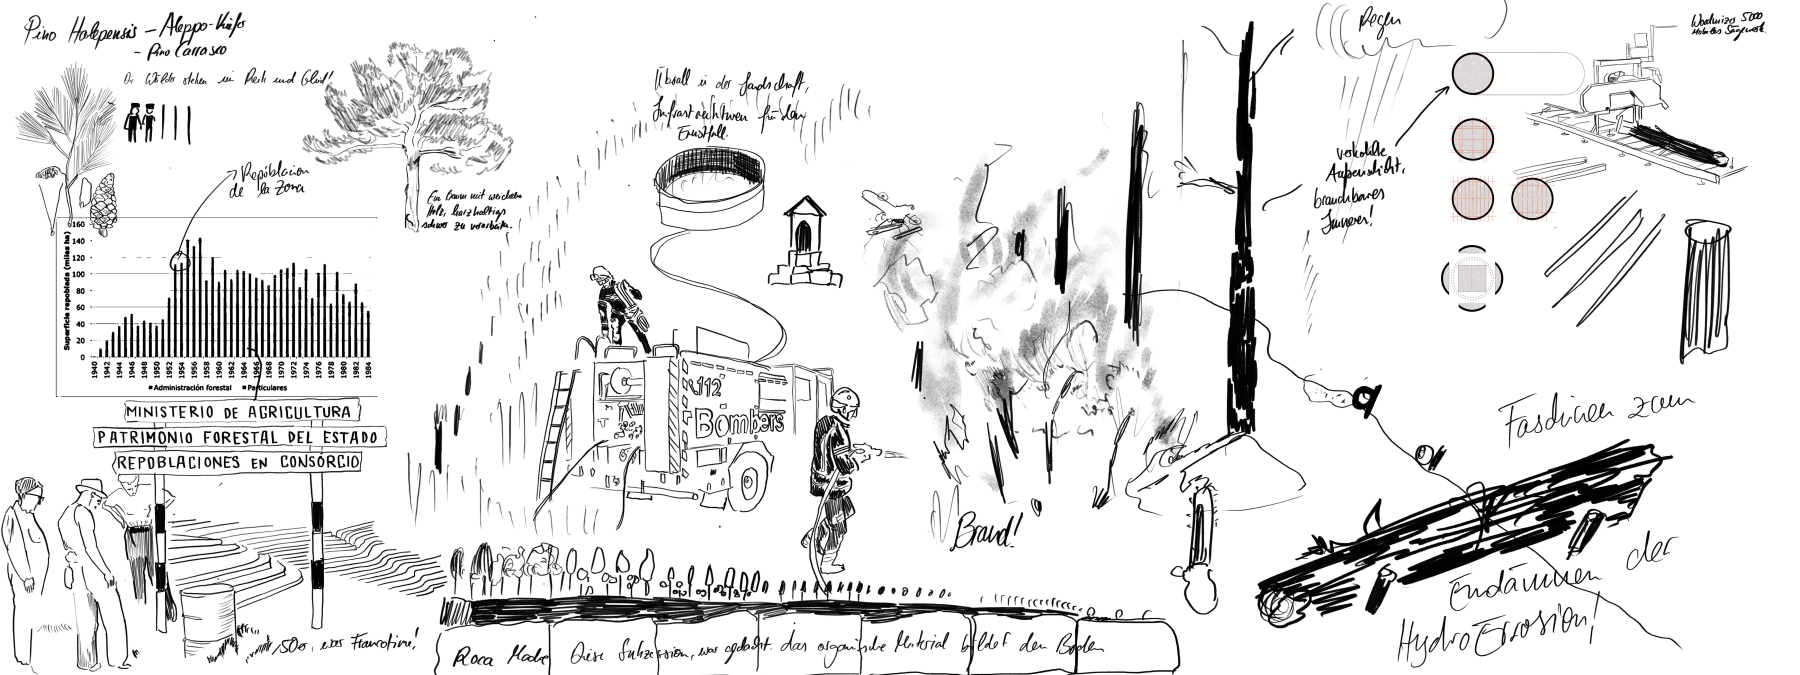 Pino Halepensis – Aleppo-Kiefer
– Pino Carrasco
Di Wälder stehen in Reih und Glied!
Repoblacion
de la zona
Ein Baum mit weichem
Holz, harzhaltig
schwer zu verarbeiten.
Superficie repoblada (miles ha)
160
140
120
100
80
60
40
20
0
1940 1942 1944 1946 1948 1950 1952 1954 1956 1958 1960 1962 1964 1966 1968 1970 1972 1974 1976 1978 1980 1982 1984
Administración forestal Particulares
MINISTERIO DE AGRICULTURA
PATRIMONIO FORESTAL DEL ESTADO
REPOBLACIONES EN CONSORCIO
50er, Francotime!
Überall in der Landschaft,
Infrastrukturen für den
Ernstfall.
112
Bombers
Brand!
Roca Madre Diese Sukzession, war gedacht. das organische Material bildet den Boden
Regen
Woodmizer 5000
Mobiles Sägewerk.
verkohlte
Aussenschicht,
brauchbares
Inneres!
Faschinen zum
Eindämmen der
Hydro Errosion!